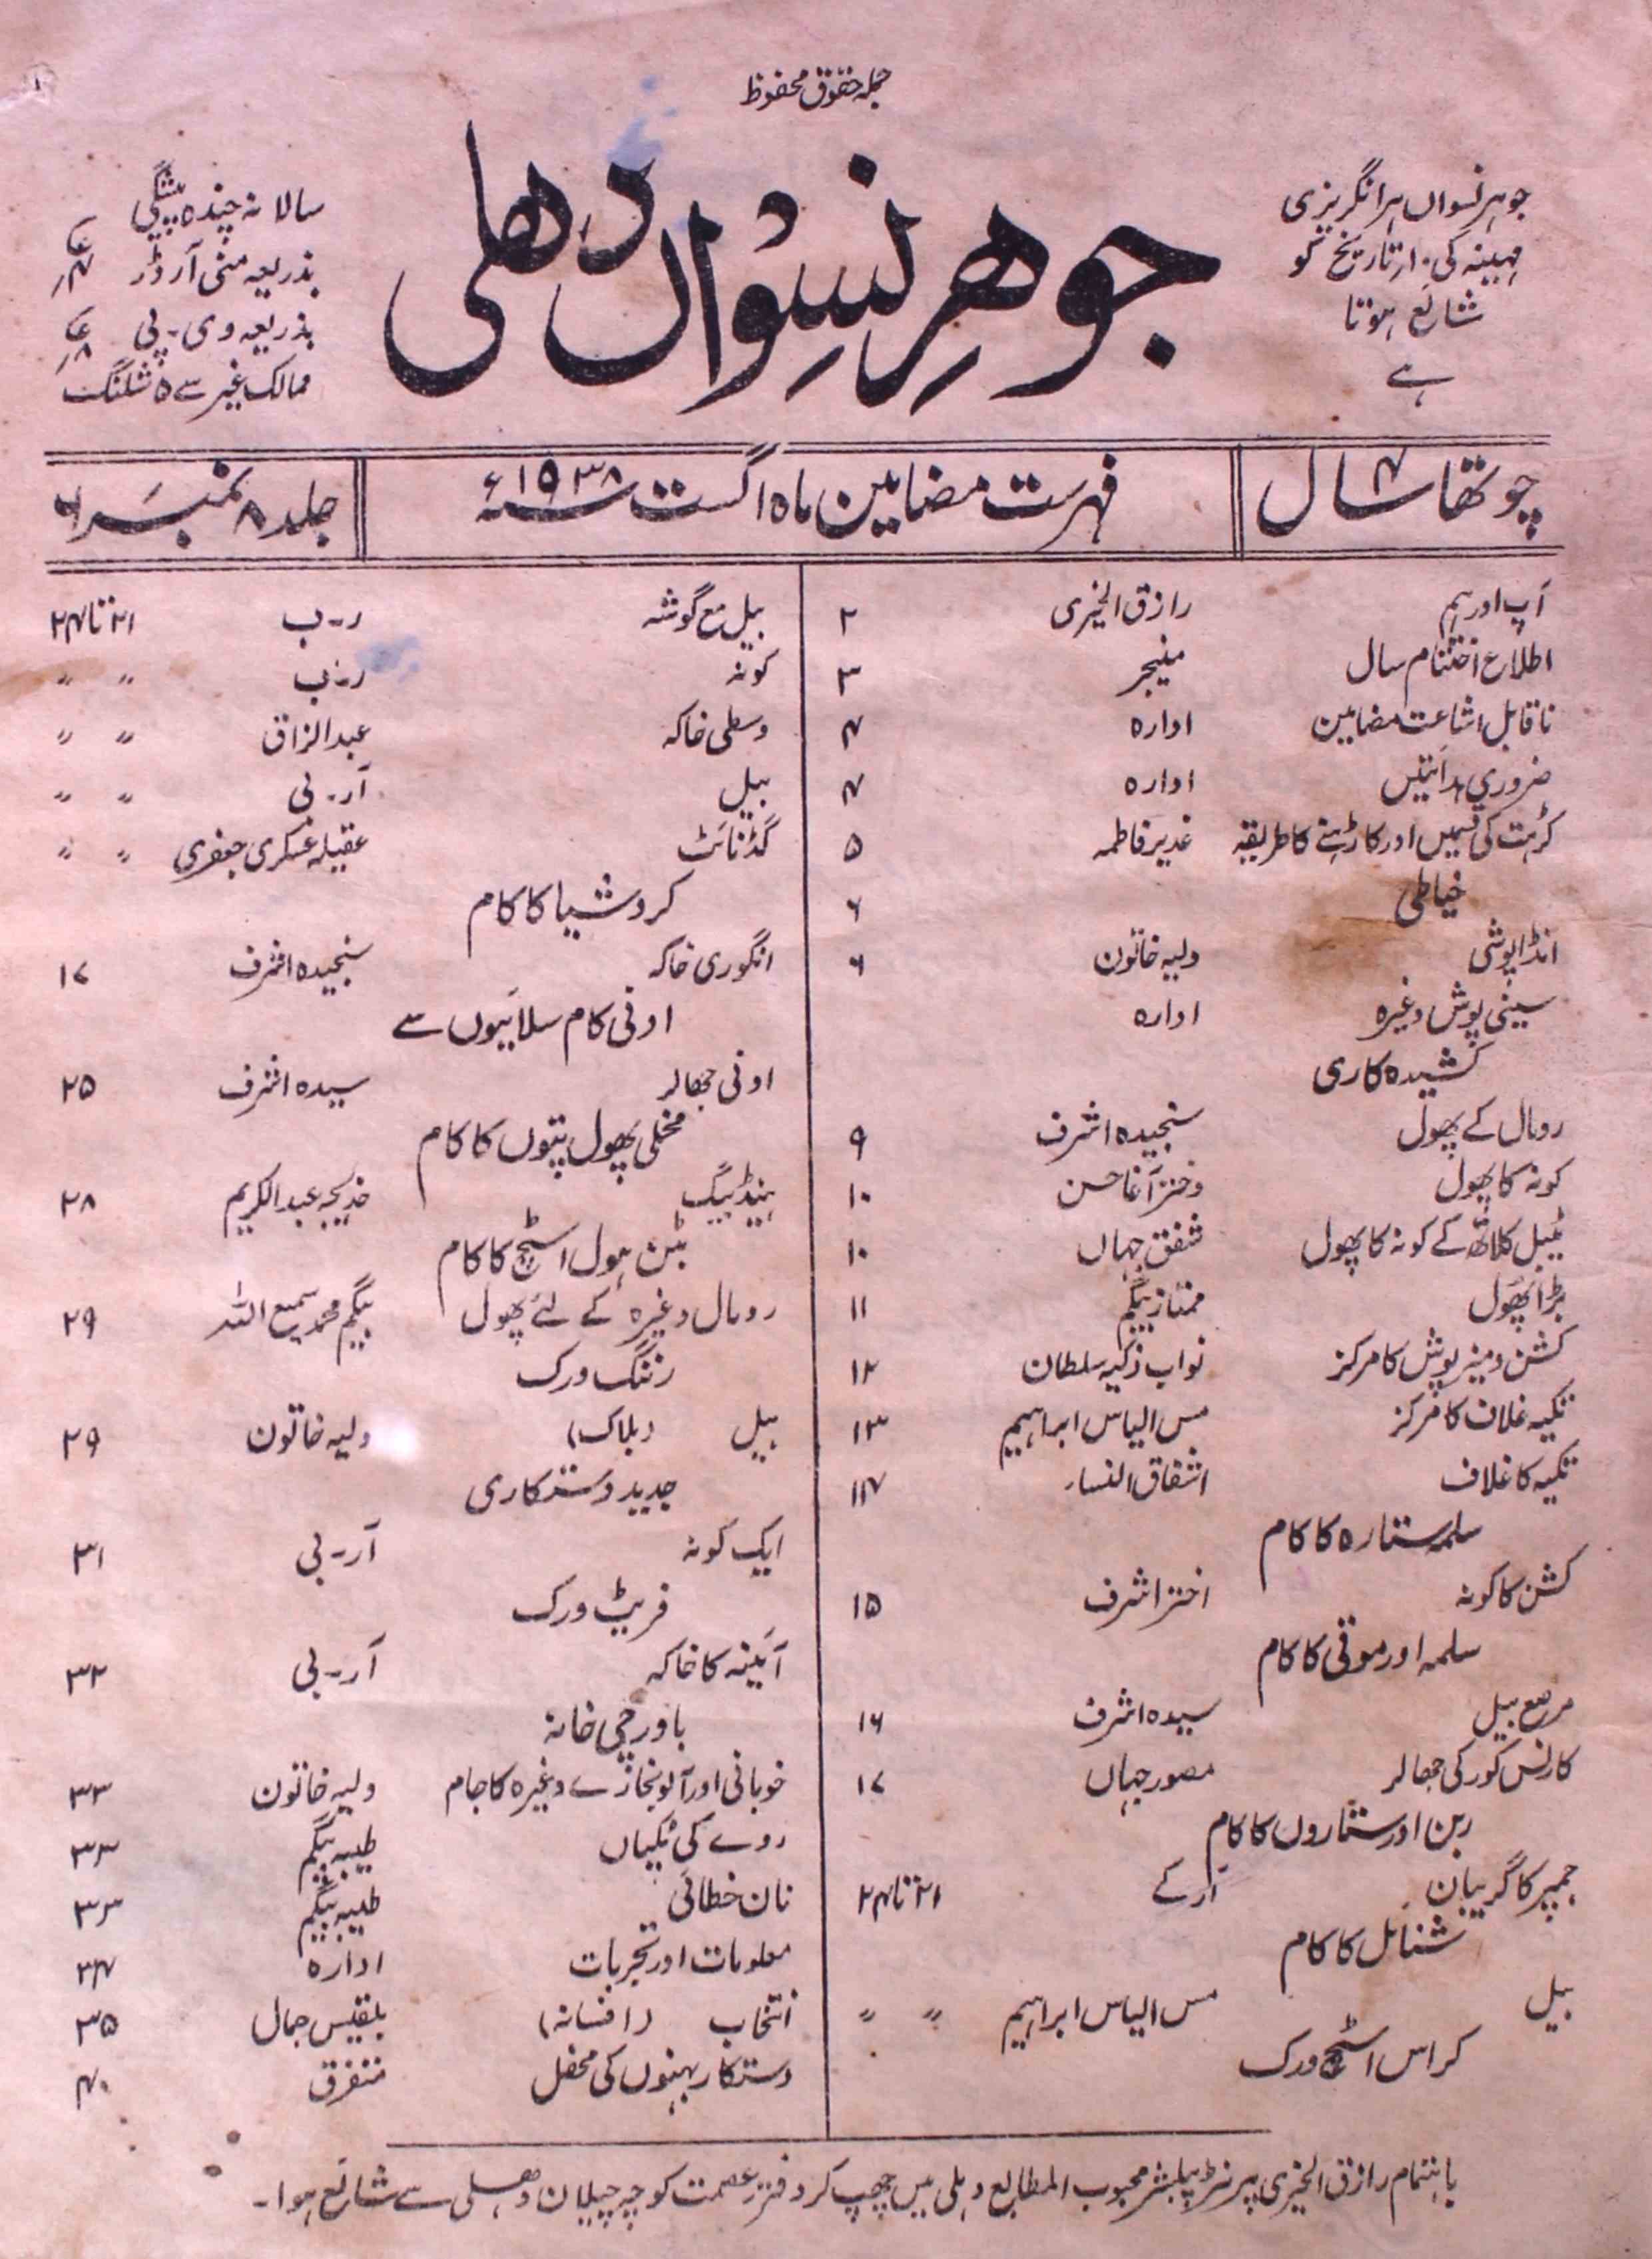 جملہ حقوق محفوظ
جوھرِ نسِواں دھلی
جوہر نسواں ہر انگریزی
مہینہ کی ۱۰ تاریخ کو
شائع ہوتا
ہے
سالانہ چندہ پیشگی
بذریعہ منی آرڈر
بذریعہ وی۔پی
ممالک غیر سے ۵ شلنگ
چوتھا سال
فہرست مضامین ماہ اگست ۱۹۳۸ء
جلد ۸ نمبر
آپ اور ہم رازق الخیری ۲
اطلاع اختتام سال منیجر ۳
ناقابل اشاعت مضامین ادارہ ۴
ضروری ہدائتیں ادارہ ۴
کڑہت کی قسمیں اور کاڑہنے کا طریقہ غدیر فاطمہ ۵
خیاطی ۶
انڈا پوشی ولیہ خاتون ۶
سینی پوش وغیرہ ادارہ
کشیدہ کاری
رومال کے پھول سنجیدہ اشرف ۹
کونہ کا پھول دختر آغا حسن ۱۰
ٹیبل کلاتھ کے کونہ کا پھول شفق جہاں ۱۰
بڑا پھول ممتاز بیگم ۱۱
کشن و میز پوش کا مرکز نواب ذکیہ سلطان ۱۲
تکیہ غلاف کا مرکز مس الیاس ابراہیم ۱۳
تکیہ کا غلاف اشفاق النساء ۱۴
سلمہ ستارہ کا کام
کشن کا کونہ اختر اشرف ۱۵
سلمہ اور موتی کا کام
مرصع بیل سیدہ اشرف ۱۶
کارنس کور کی جھالر مصور جہاں ۱۷
ربن اور ستاروں کا کام
جمپر کا گریبان آر کے ۲۱ تا ۲۴
شنائل کا کام
بیل مس الیاس ابراہیم 〃 〃
کراس اسٹچ ورک
بیل مع گوشہ ر۔ب ۲۱ تا ۲۴
کونہ ر۔ب 〃 〃
وسطی خاکہ عبدالزاق 〃 〃
بیل آر۔بی 〃 〃
گڈ نائٹ عقیلہ عسکری جعفری 〃 〃
کروشیا کا کام
انگوری خاکہ سنجیدہ اشرف ۱۷
اونی کام سلائیوں سے
اونی جھالر سیدہ اشرف ۲۵
مخملی پھول پتوں کا کام
ہینڈ بیگ خدیجہ عبدالکریم ۲۸
بٹن ہول اسٹچ کا کام
رومال وغیرہ کے لئے پھول بیگم محمد سمیع اللہ ۲۹
رننگ ورک
بیل (بلاک) ولیہ خاتون ۲۹
جدید دستکاری
ایک کونہ آر۔بی ۳۱
فریٹ ورک
آئینہ کا خاکہ آر۔بی ۳۲
باورچی خانہ
خوبانی اور آلو بخارے وغیرہ کا جام ولیہ خاتون ۳۳
روے کی ٹکیاں طیبہ بیگم ۳۳
نان خطائی طیبہ بیگم ۳۳
معلومات اور تجربات ادارہ ۳۴
انتخاب (افسانہ) بلقیس جمال ۳۵
دستکار بہنوں کی محفل متفرق ۴۰
باہتمام رازق الخیری پرنٹر پبلشر محبوب المطابع دہلی میں چھپ کر دفتر عصمت کوچہ چیلان دھلی سے شائع ہوا۔